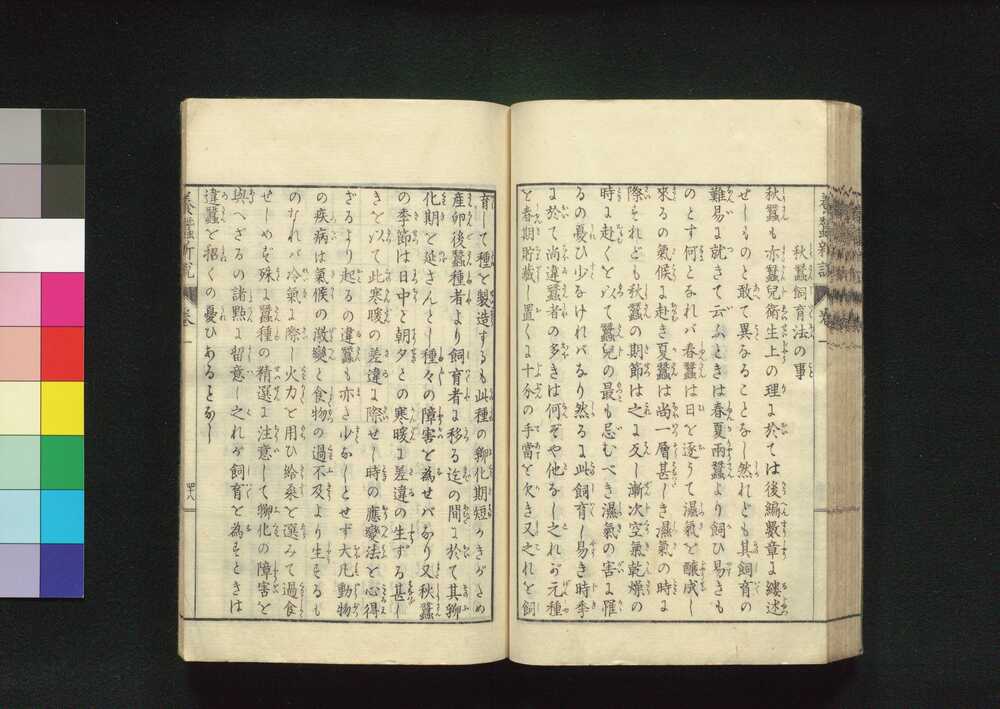 秋蠶飼育法の事
秋蠶も亦蠶兒衛生上の理に於ては後編數章に縷述
せしものと敢て異なることなし然れども其飼育の
難易に就きて云ふときは春夏兩蠶より飼ひ易きも
のとす何となれバ春蠶は日を逐うて濕氣を醸成し
來るの氣候に赴き夏蠶は尚一層甚しき濕氣の時に
際すれども秋蠶の期節は之に反し漸次空氣乾燥の
時に赴くを以て蠶兒の最も忌むべき濕氣の害に罹
るの憂ひ少なけれバなり然るに此飼育し易き時季
に於て尚違蠶者の多きは何ぞや他なし之れが元種
を春期貯藏し置くに十分の手當を欠き又之れを飼
育して種を製造するも此種の孵化期短かきがため
産卵後蠶種者より飼育者に移る迄の間に於て其孵
化期を延さんとし種々の障害を為せバなり又秋蠶
の季節は日中と朝夕との寒暖に差違の生ずる甚し
きを以て此寒暖の差違に際せし時の應變法を心得
ざるより起るの違蠶も亦さ少なしとせず大凡動物
の疾病は氣候の激變と食物の過不及より生ずるも
のなれバ冷氣に際し火力を用ひ給桑を選みて過食
せしめず殊に蠶種の精選に注意して孵化の障害を
與へざるの諸點に留意し之れが飼育を為すときは
違蠶を招くの憂ひあるなし
四八